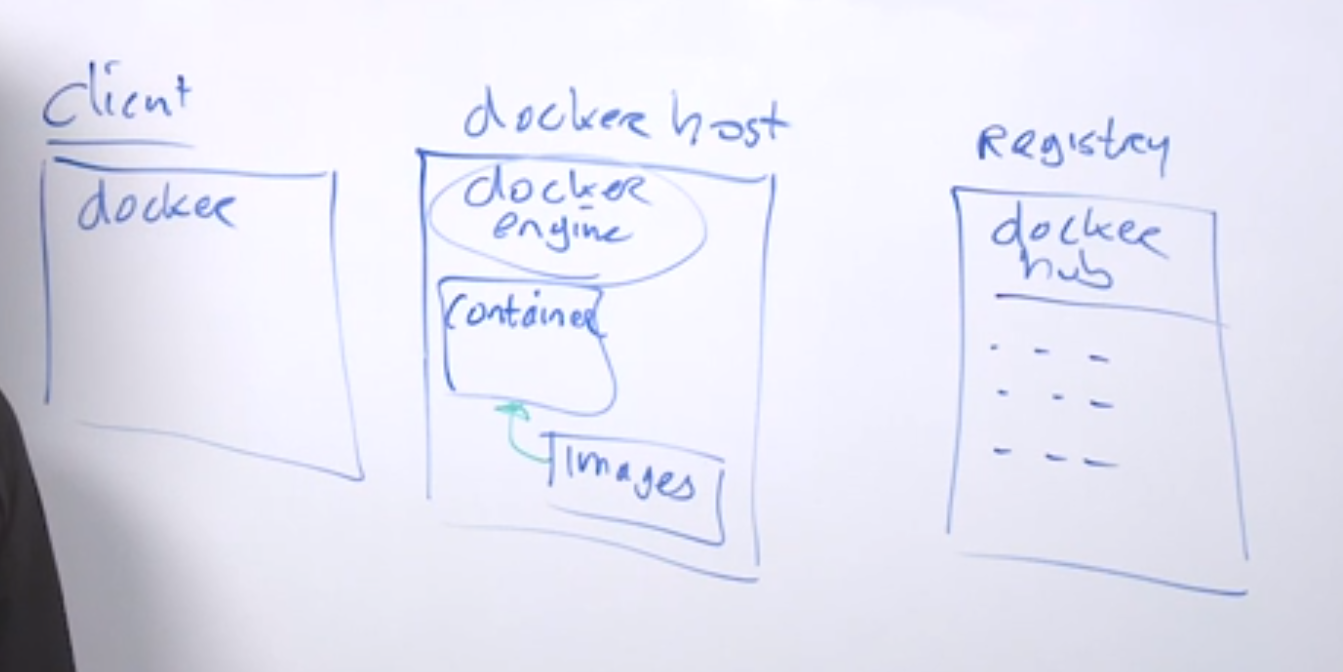 Client
docker
docker host
docker
engine
Container
Images
Registry
docker
hub